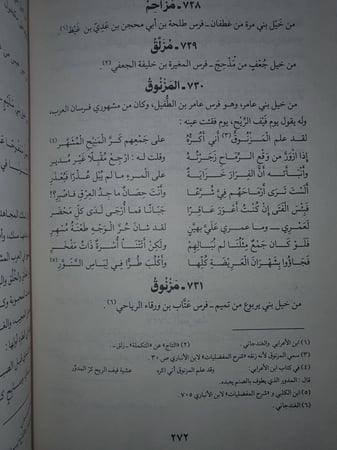 ٧٢٨ ـ مُزَاحِمٌ
من خَيْل بني مرة من غطفان ـ فرس طلحة بن أبي محجن بن عَدِيّ بن غَيْظ (١).
٧٢٩ ـ مُزَلَّقٌ
من خيل جُعْفي من مَذْحِجَ ـ فرس المغيرة بن خليفة الجعفي (٢)
٧٣٠ ـ المَزْنُوقُ
من خيل بني عامر، وهو فرس عامر بن الطُّفيل، وكان من مشهوري فرسان العرب،
وله يقول يوم فَيْفِ الرِّيحِ، يوم فقئت عينه:
لقد علم المَزْنُوقُ (٣) أني أكُرُّهُ على جَمْعِهِم كَرَّ المَنِيحِ المُشَهَّرِ (٤)
إذا ازْوَرَّ من وَقْعِ الرِّمَاحِ زَجَرْتُهُ وقلت له: ارْجِعْ مُقْبِلًا غَيْرَ مُدبرِ
وأنْبَأْتُهُ أَنَّ الفِرَارَ خَزَايَةٌ على المرءِ ما لم يُبْلِ عُذْرًا فَيُعْذَرِ
ألَسْتَ تَرَى أرماحَهُمْ فيَّ شُرَّعًا وأنتَ حِصَانٌ ماجِدُ العِرقِ فاصْبِرِ؟!
فبِئسَ الفَتَى إنْ كُنْتُ أعْوَرَ عاقِرًا جَبَانًا فما أُرْجَى لَدَى كلِّ مَحْضَرِ
لَعَمْرِي ــ وما عمري عَلَيَّ بهيِّنٍ لقد شانَ حُرَّ الوجْهِ طَعْنَةُ مُسْهِرِ
فلو كان جَمْعٌ مِثْلُنَا لم نُبَالِهِمْ ولكنْ أتَتْنَا أُسرةٌ ذاتُ مَفْخَرِ
فَجَاؤُوا بِشَهْرَانَ العَرِيضَةِ كُلِّهَا وأكْلُبَ طُرًّا في لِبَاسِ السَّنَوَّرِ (٥)
٧٣١ ـ مَزْنُوقٌ
من خيل بني يربوع من تميم ـ فرس عَتَّاب بن ورقاء الرياحي (٦).
(١) ابن الأعرابي. والغندجاني. (٢) «التاج» عن «التكملة» ـ زلق.
(٣) سمي المزنوق لأنه زنقه «شرح المفضليات» لابن الأنباري ص ٣٠.
(٤) في كتاب ابن الأعرابي: وقد علم المزنوق أني أكره عشية فيف الريح كرّ المدوّر
قال: المدور الذي يطوف بالصنم يعبده.
(٥) ابن الكلبي و«شرح المفضليات» لابن الأنباري ٧٠٥
(٦) الغندجاني.
٢٧٢